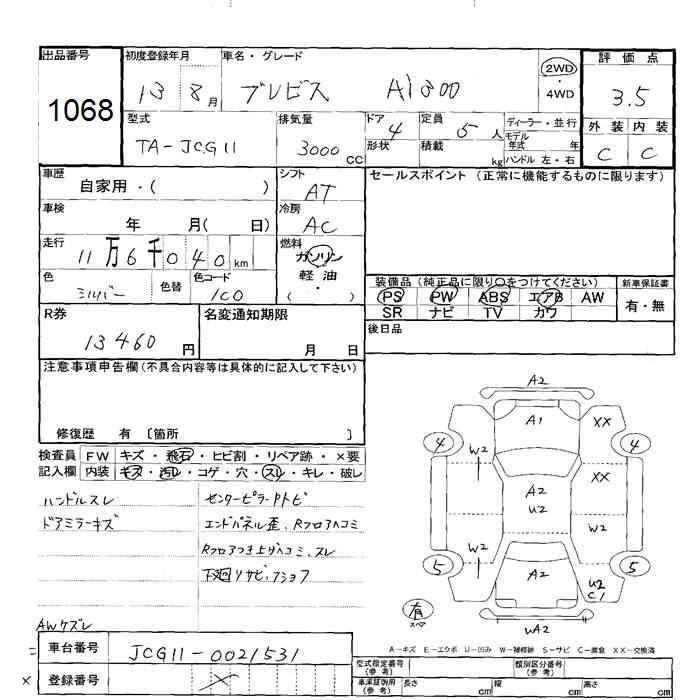 出品番号
1068
初度登録年月
13 8月
車名・グレード
ブレビス Ai300
2WD
・
4WD
評価点
3.5
外装 内装
C C
型式
TA-JCG11
排気量
3000cc
ドア 4
形状
定員 5人
積載 kg
ディーラー・並行
モデル年式 年
ハンドル 左・右
車歴
自家用・( )
シフト
AT
セールスポイント (正常に機能するものに限ります)
車検
年 月( 日)
冷房
AC
走行
11万6千040km
燃料
ガソリン
軽油
・
( )
色
シルバー
色替
色コード
1C0
装備品 (純正品に限り○をつけてください)
PS PW ABS エアB AW
SR ナビ TV カワ
新車保証書
有・無
R券
13460円
名変通知期限
月 日
後日品
注意事項申告欄(不具合内容等は具体的に記入して下さい)
修復歴 有 〔箇所 〕
検査員記入欄
FW キズ・飛石・ヒビ割・リペア跡・×要
内装 キズ・汚レ・コゲ・穴・スレ・キレ・破レ
ハンドルスレ
ドアミラーキズ
センターピラーPトビ
エンドパネル歪、Rフロアヘコミ
Rフロアつき上げヘコミ、スレ
下廻りサビ、
AWケズレ
A2
A1
XX
4
4
W2
XX
A2
U2
W2
W2
5
5
A2
U2
C1
有
スペア
WA2
A-キズ E-エクボ U-凹み W-補修跡 S-サビ C-腐食 XX-交換済
= 車台番号 JCG11-0021531
× 登録番号
型式指定番号
(参考)
類別区分番号
(参考)
車庫証明用
(参考)
長さ cm 幅 cm 高さ cm